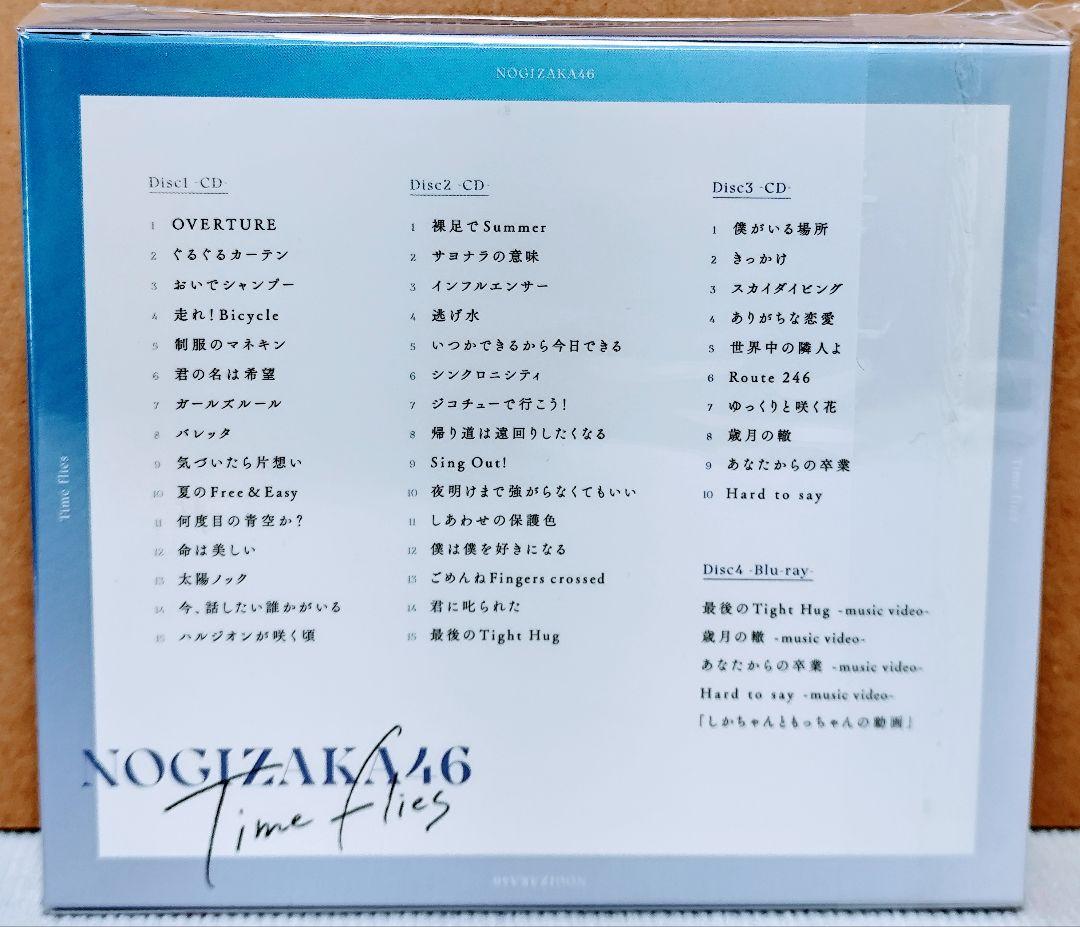 NOGIZAKA46
Disc1 -CD-
1 OVERTURE
2 ぐるぐるカーテン
3 おいでシャンプー
4 走れ！Bicycle
5 制服のマネキン
6 君の名は希望
7 ガールズルール
8 バレッタ
9 気づいたら片想い
10 夏のFree＆Easy
11 何度目の青空か？
12 命は美しい
13 太陽ノック
14 今、話したい誰かがいる
15 ハルジオンが咲く頃
Disc2 -CD-
1 裸足でSummer
2 サヨナラの意味
3 インフルエンサー
4 逃げ水
5 いつかできるから今日できる
6 シンクロニシティ
7 ジコチューで行こう！
8 帰り道は遠回りしたくなる
9 Sing Out!
10 夜明けまで強がらなくてもいい
11 しあわせの保護色
12 僕は僕を好きになる
13 ごめんねFingers crossed
14 君に叱られた
15 最後のTight Hug
Disc3 -CD-
1 僕がいる場所
2 きっかけ
3 スカイダイビング
4 ありがちな恋愛
5 世界中の隣人よ
6 Route 246
7 ゆっくりと咲く花
8 歳月の轍
9 あなたからの卒業
10 Hard to say
Disc4 -Blu-ray-
最後のTight Hug -music video-
歳月の轍 -music video-
あなたからの卒業 -music video-
Hard to say -music video-
「しかちゃんともっちゃんの動画」
NOGIZAKA46
Time flies
Time flies
Time flies
NOGIZAKA46